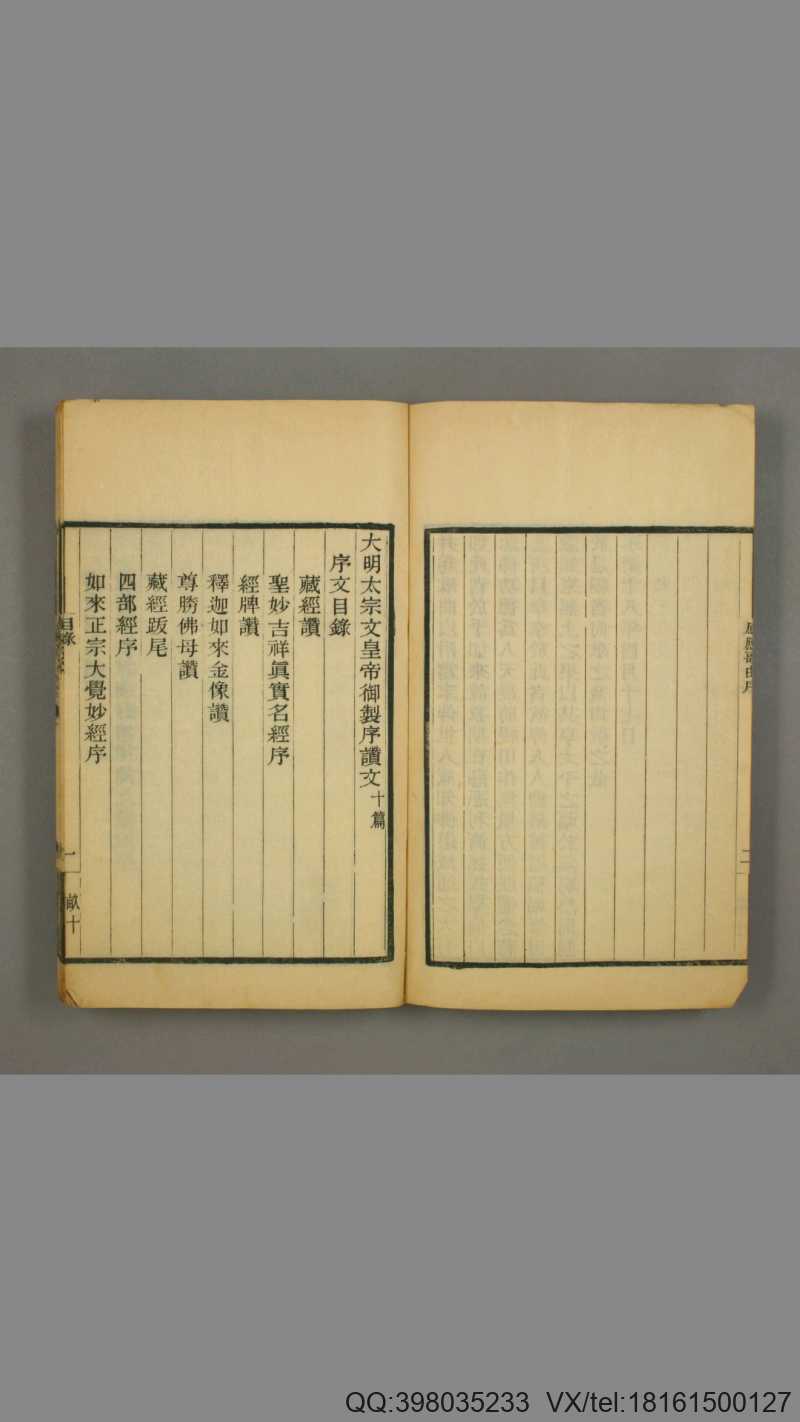 大明太宗文皇帝御製序讚文十篇
序文目錄
藏經讚
聖妙吉祥眞實名經序
經牌讚
釋迦如來金像讚
尊勝佛母讚
藏經跋尾
四部經序
如來正宗大覺妙經序
目錄
一
十
二
QQ:398035233 VX/tel:18161500127